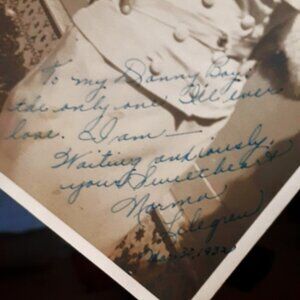 To my Danny Boy,
the only one I'll ever
love. I am —
Waiting anxiously,
your Sweetheart
Norma
1932